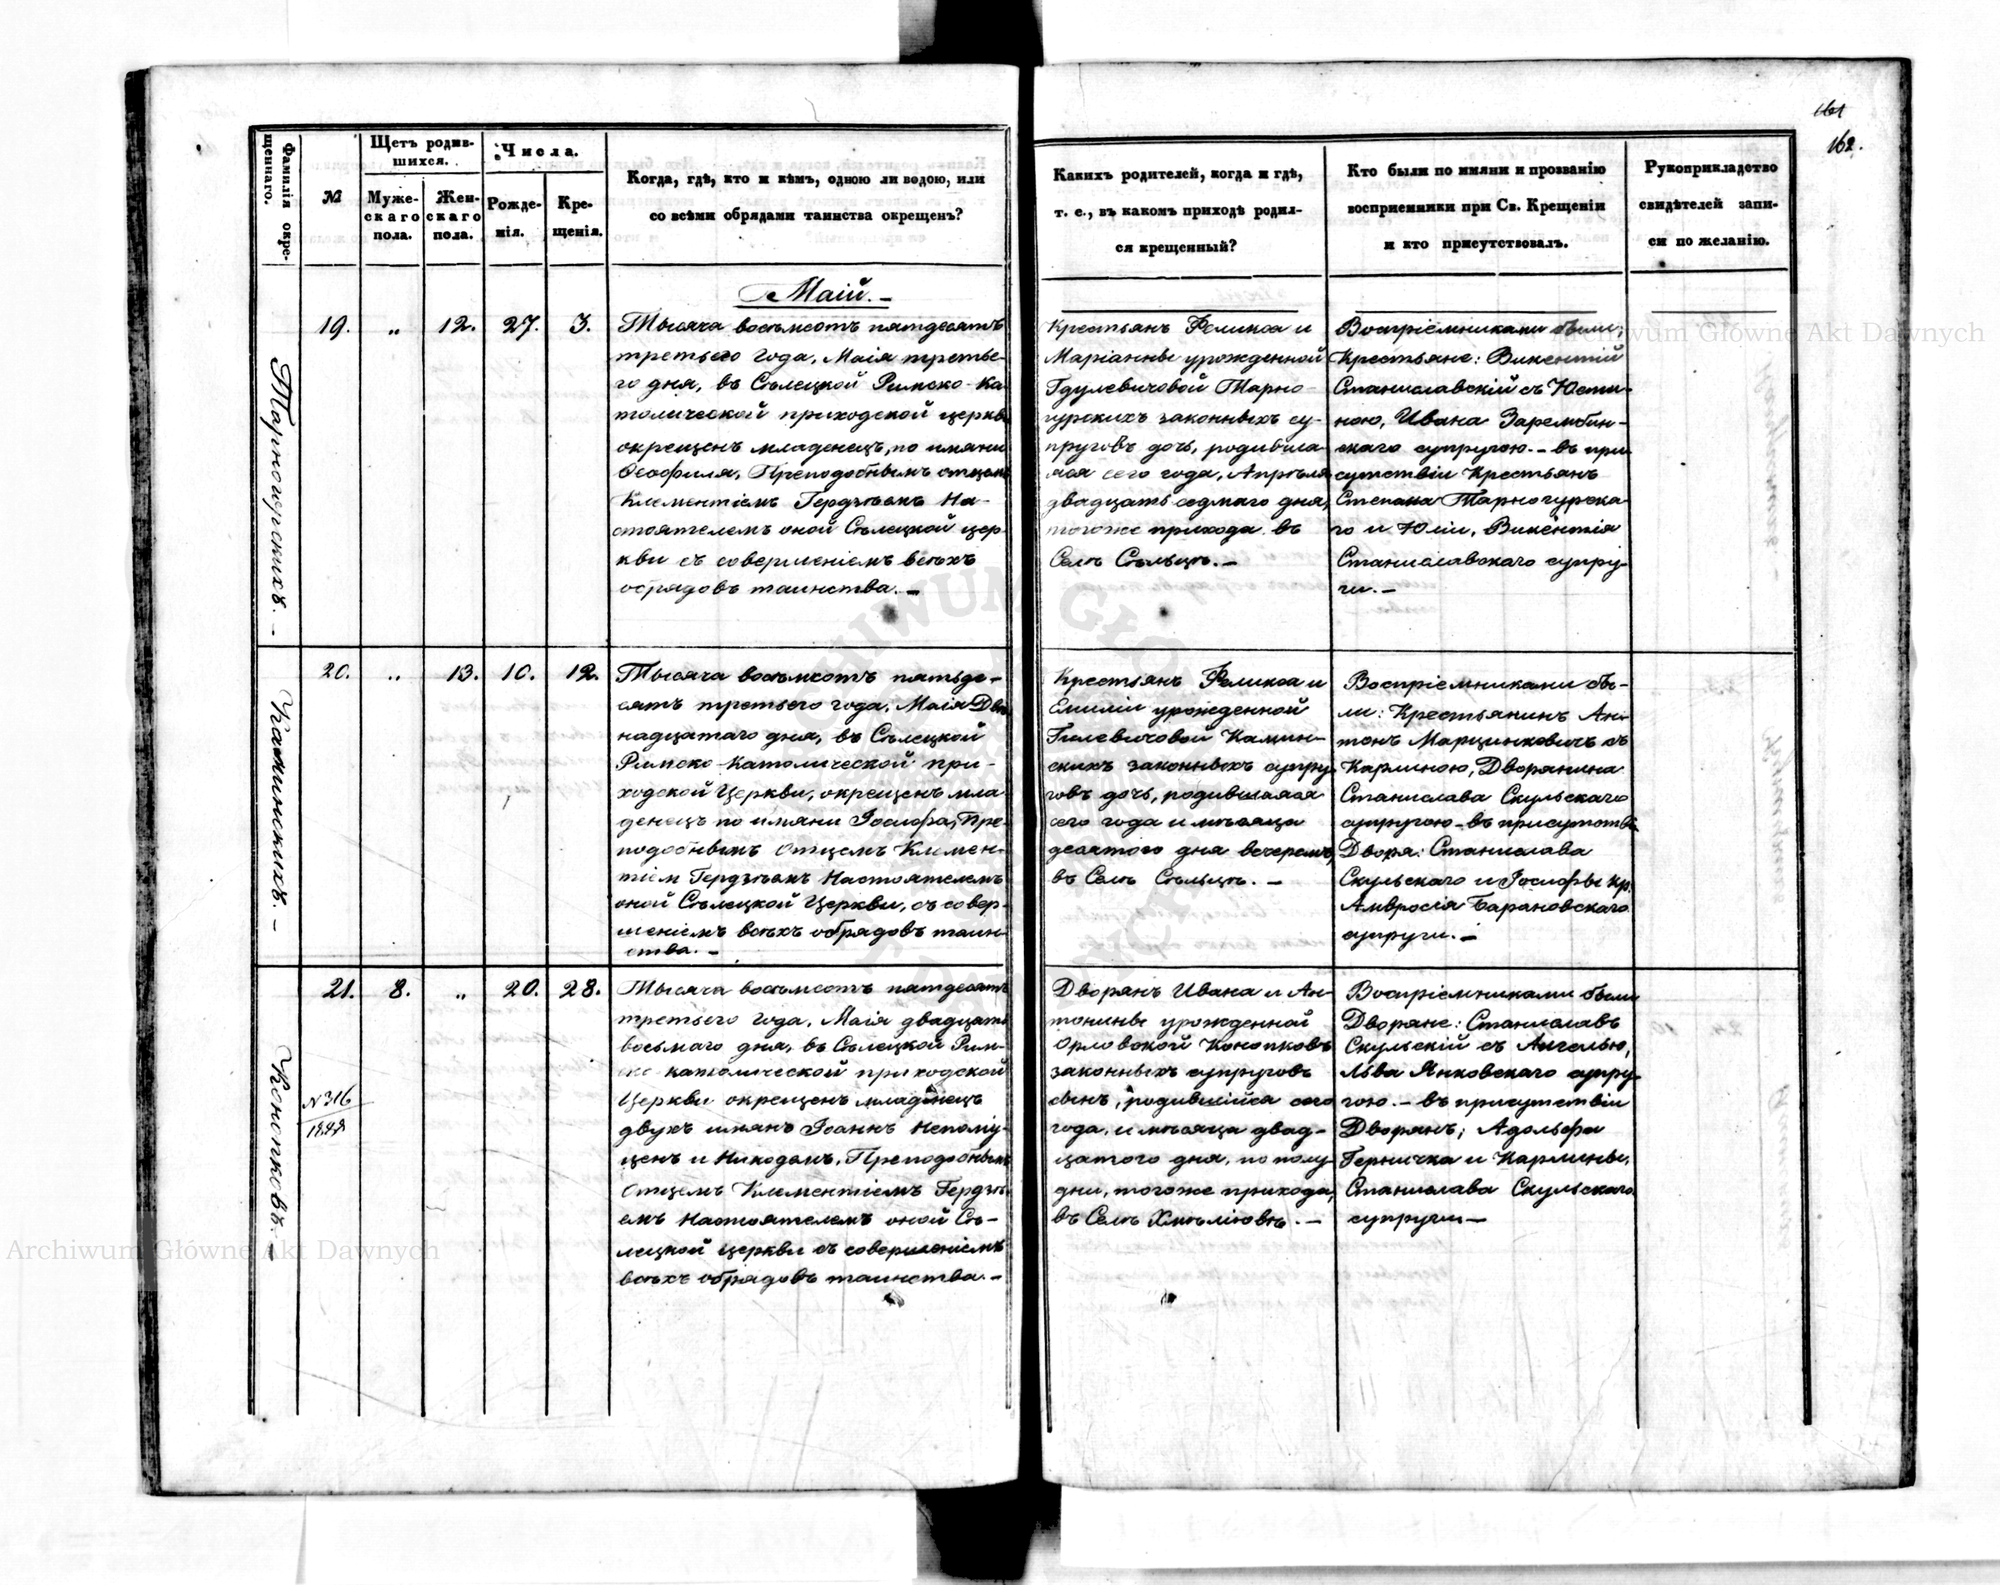 161
162.
Фамилія окре-
щеннаго.
№
Щетъ родив-
шихся.
Муже-
скаго
пола.
Жен-
скаго
пола.
Числа.
Рожде-
нія.
Кре-
щенія.
Когда, гдѣ, кто и кѣмъ, одною ли водою, или
со всѣми обрядами таинства окрещенъ?
Какихъ родителей, когда и гдѣ,
т. е., въ какомъ приходѣ родил-
ся крещенный?
Кто были по имяни и прозванію
воспріемники при Св. Крещеніи
и кто присутствовалъ.
Рукоприкладство
свидѣтелей запи-
си по желанію.
Маій. —
Тарногурскихъ. —
19.
„
12.
27.
3.
Тысяча восемьсотъ пятдесятъ
третьего года, Маія третье-
го дня, въ Сѣлецкой Римско-Ка
толической приходской церкви
окрещенъ младенецъ, по имяни
Ѳеофиля, Преподобнымъ отцомъ
Клементіемъ Гердзѣемъ На-
стоятелемъ оной Сѣлецкой цер-
кви съ совершеніемъ всѣхъ
обрядовъ таинства. —
Крестьянъ Феликса и
Маріанны урожденной
Гдулевичовой Тарно-
гурскихъ законныхъ су-
пруговъ дочь, родивша-
яся сего года, Апрѣля
двадцать седмаго дня,
тогоже прихода въ
Селѣ Сѣльцѣ. —
Воспріемниками были:
Крестьяне: Викентій
Станиславскій съ Юсти-
ною, Ивана Зарембин-
скаго супругою. — въ при
сутствіи Крестьянъ
Степана Тарногурска-
го и Юліи, Викентія
Станиславскаго супру-
ги. —
Каминскихъ —
20.
„
13.
10.
12.
Тысяча восемьсотъ пятьде-
сятъ третьего года, Маія Две
надцатаго дня, въ Сѣлецкой
Римско-Католической при-
ходской Церкви, окрещенъ мла-
денецъ по имяни Іосифа, Пре-
подобнымъ Отцемъ Климен-
тіем Гердзѣемъ Настоятелемъ
оной Сѣлецкой Церкви, съ совер-
шеніемъ всѣхъ обрядовъ таин-
ства. —
Крестьянъ Феликса и
Емиліи урожденной
Гилевичовой Камин-
скихъ законныхъ супру-
говъ дочь, родившаяся
сего года и мѣсяца
десятого дня вечеремъ,
въ Селѣ Сѣльцѣ. —
Воспріемниками бы-
ли: Крестьянинъ Ан-
тонъ Марцинковичъ съ
Карлиною, Дворянина
Станислава Скульскаго
супругою — въ присутствіи
Дворя: Станислава
Скульскаго и Іосифы кр.
Амвросія Барановскаго
супруги. —
Конопковъ. —
21.
8.
„
20.
28.
N 316
Тысяча восемьсотъ пятдесятъ
третьего года, Маія двадцать
восьмаго дня, въ Сѣлецкой Рим-
ско католической приходской
Церкви окрещенъ младенецъ
двухъ имянъ Іоаннъ Непому-
ценъ и Никодемъ, Преподобнымъ
Отцемъ Клементіемъ Гердзѣ-
емъ Настоятелемъ оной Сѣ-
лецкой церкви съ совершеніемъ
всѣхъ обрядовъ таинства. —
Дворянъ Ивана и Ан-
тонины урожденной
Орловской Конопковъ
законныхъ супруговъ
сынъ, родившійся сего
года, и мѣсяца двад-
цатого дня, по полу-
дни, тогоже прихода,
въ Селѣ Хмѣліовѣ. —
Воспріемниками были
Дворяне: Станиславъ
Скульскій съ Ангелью,
Льва Янковскаго супру-
гою. — въ присутствіи
Дворянъ; Адольфа
Герничка и Карлины,
Станислава Скульскаго
супруги —
Archiwum Główne Akt Dawnych
Archiwum Główne Akt Dawnych